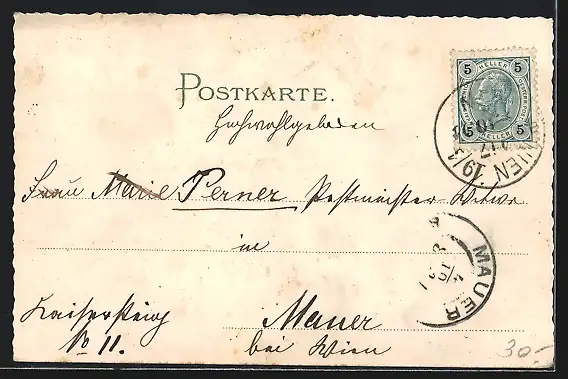 POSTKARTE.
Hochwohlgeboren
5 HELLER 5
5 HELLER 5
WIEN 19/1
Frau Marie Perner Postmeister Witwe
in
MAUER
Kaisersteig
No 11.
Mauer
bei Wien
30.-